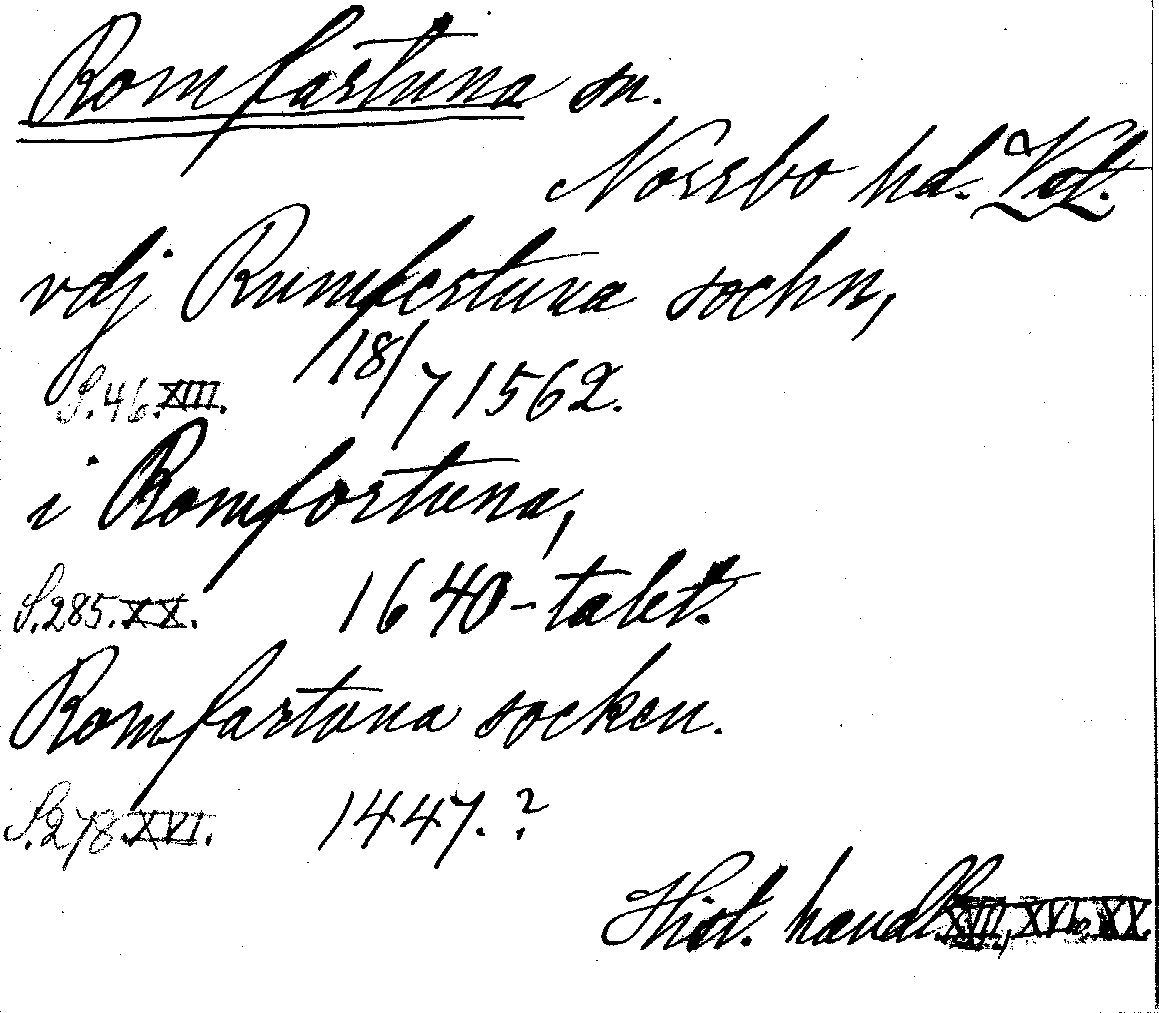 Romfartuna sn.
Norrbo hd. Vstl.
vdj Rumfertuna sochn,
S. 46. XIII. 18/7 1562.
i Romfortuna,
S. 285. XX. 1640-talet.
Romfartuna socken.
S. 278. XVI. 1447.?
Hist. handl. XIII, XVI o. XX